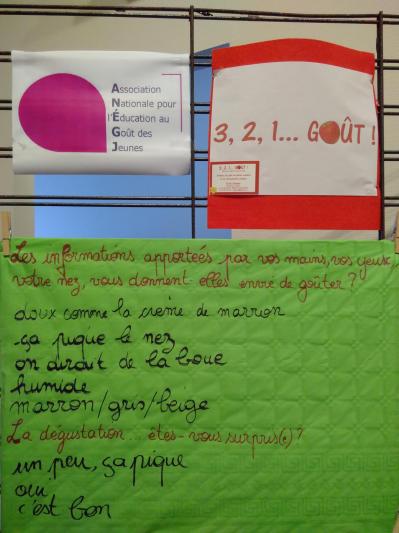 Association
Nationale pour
l'Éducation au
Goût des
Jeunes
3, 2, 1... GOÛT !
3, 2, 1... GOÛT !
Les informations apporteés par vos mains, vos yeux,
votre nez, vous donnent-elles envie de goûter ?
doux comme la crème de marron
ça pique le nez
on dirait de la boue
humide
marron/gris/beige
La dégustation... êtes-vous surpris(e) ?
un peu, ça pique
oui
c'est bon